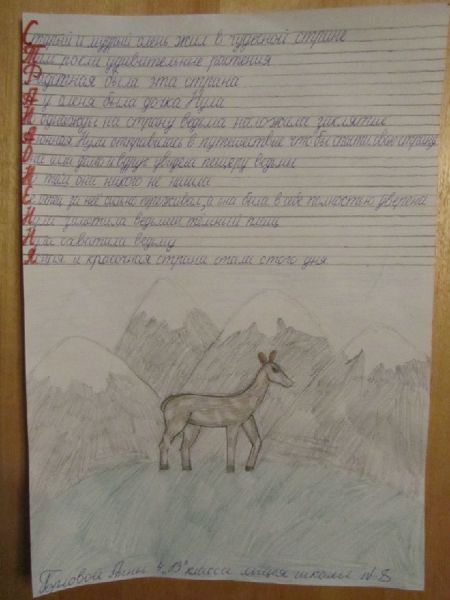 Старый и мудрый олень жил в чудесной стране
Там росли удивительные растения
Радужная была эта страна
А у оленя была дочка Нули
Но однажды на страну ведьма наложила заклятие
Нули отправилась в путешествие что бы спасти свою страну
Она шла долго и вдруг увидела пещеру ведьмы
Но там она никого не нашла
за неё сильно переживал, а она была в себе полностью уверена
ведьмин тёмный плащ
схватила ведьму
и красочная страна стала с того дня
Анны 4 "В" класса лицея школы №8